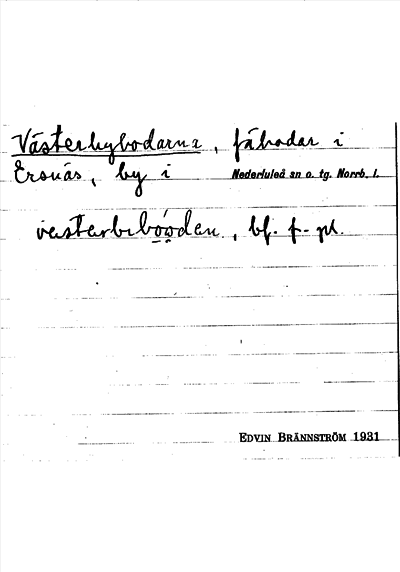 Västerbybodarna, fäbodar i
Ersnäs, by i Nederluleå sn o. tg. Norrb. l.
, bf. f. pl.
EDVIN BRÄNNSTRÖM 1931